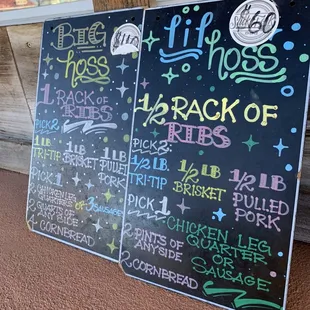 BIG
HOSS
1 RACK OF
RIBS
PICK 2
1 LB
TRI-TIP
1 LB
BRISKET
1 LB
PULLED
PORK
PICK 1
CHICKEN LEG
QUARTERS
OR 3 SAUSAGE
2 QUARTS OF
ANY SIDE
CORNBREAD
lil
HOSS
$60
1/2 RACK OF
RIBS
PICK 2
1/2 LB
TRI-TIP
1/2 LB
BRISKET
1/2 LB
PULLED
PORK
PICK 1
CHICKEN LEG
QUARTER
OR
SAUSAGE
2 PINTS OF
ANY SIDE
2 CORNBREAD